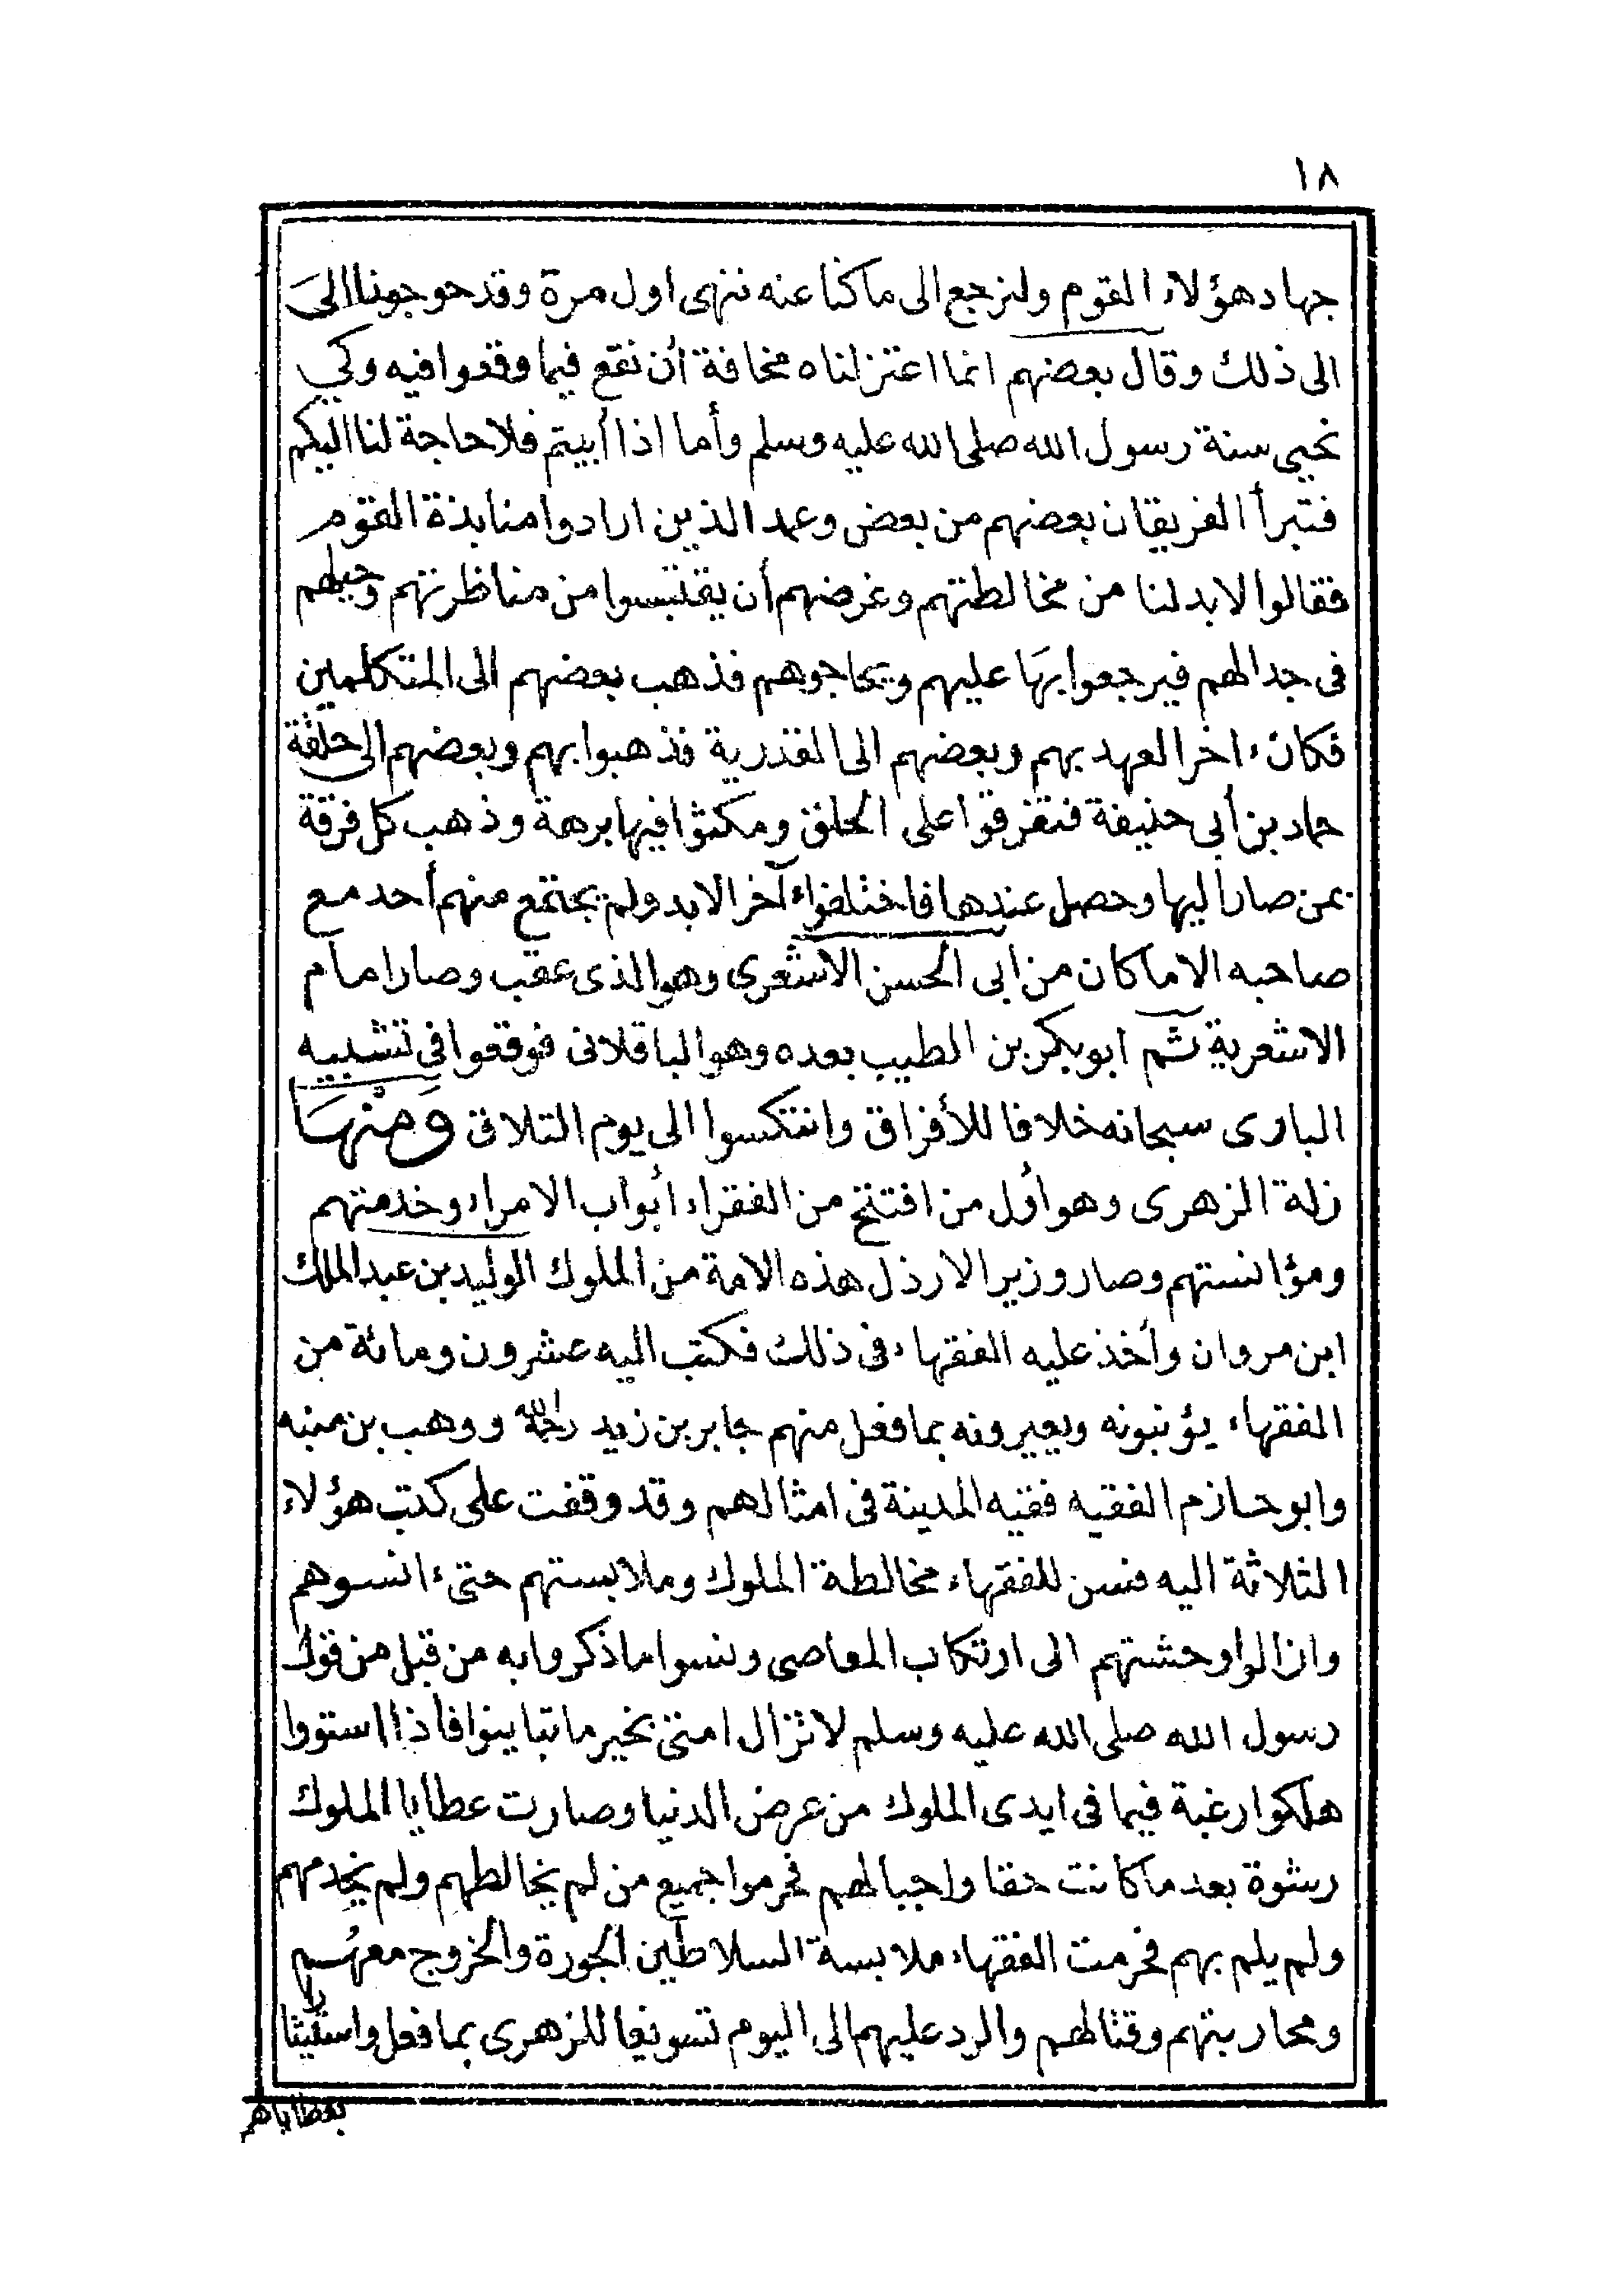 ١٨
جهاد هؤلاء القوم ولنرجع الى ماكنا عنه ننهى اول مرة وقد حوجونا الىَ
الى ذلك وقال بعضهم انما اعتزلناه مخافة أن نقع فيما وقعوا فيه وكي
نحيي سنة رسول الله صلى الله عليه وسلم وأما اذا أبيتم فلا حاجة لنا اليكم
فتبرأ الفريقان بعضهم من بعض وعمد الذين ارادوا منابذة القوم
فقالوا لابد لنا من مخالطتهم وغرضهم أن يقتبسوا من مناظرتهم وحيلهم
فى جدالهم فيرجعوا بهَا عليهم ويحاجوهم فذهب بعضهم الى المتكلمين
فكانء اخر العهد بهم وبعضهم الى القدرية فذهبوا بهم وبعضهم الى حلقة
حماد بن أبى حنيفة فتفرقوا على الحلق ومكثوا فيها برهة وذهب كل فرقة
بمن صار اليها وحصل عندها فاختلفواء آخر الابد ولم يجتمع منهم أحد مع
صاحبه الا ما كان من ابى الحسن الاشعرى وهو الذى عقب وصار امام
الاشعرية ثم ابو بكر بن الطيب بعده وهو الباقلانى فوقعوا فى تشبيه
البارى سبحانه خلافا للأفراق وانتكسوا الى يوم التلاق وَمنْهَا
زلة الزهرى وهو أول من افتتح من الفقراء أبواب الامراء وخدمتهم
ومؤانستهم وصار وزيرا لارذل هذه الامة من الملوك الوليد بن عبد الملك
ابن مروان وأخذ عليه الفقهاء فى ذلك فكتب اليه عشرون ومائة من
الفقهاء يؤنبونه ويعيرونه بما فعل منهم جابر بن زيد رحمه الله ووهب بن منبه
وابو حازم الفقيه فقيه المدينة فى امثالهم وقد وقفت على كتب هؤلاء
الثلاثة اليه فسن للفقهاء مخالطة الملوك وملابستهم حتىء انسوهم
وازالوا وحشتهم الى ارتكاب المعاصى ونسوا ما ذكروا به من قبل من قول
رسول الله صلى الله عليه وسلم لا تزال امتى بخير ما تباينوا فاذا استووا
هلكوا رغبة فيما فى ايدى الملوك من عرض الدنيا وصارت عطايا الملوك
رشوة بعد ما كانت حقا واجبا لهم فحرموا جميع من لم يخالطهم ولم يخدمهم
ولم يلم بهم فحرمت الفقهاء ملابسة السلاطين الجورة والخروج معهُم
ومحاربتهم وقتالهم والرد عليهم الى اليوم تسويغا للزهرى بما فعل
بعطاياهم